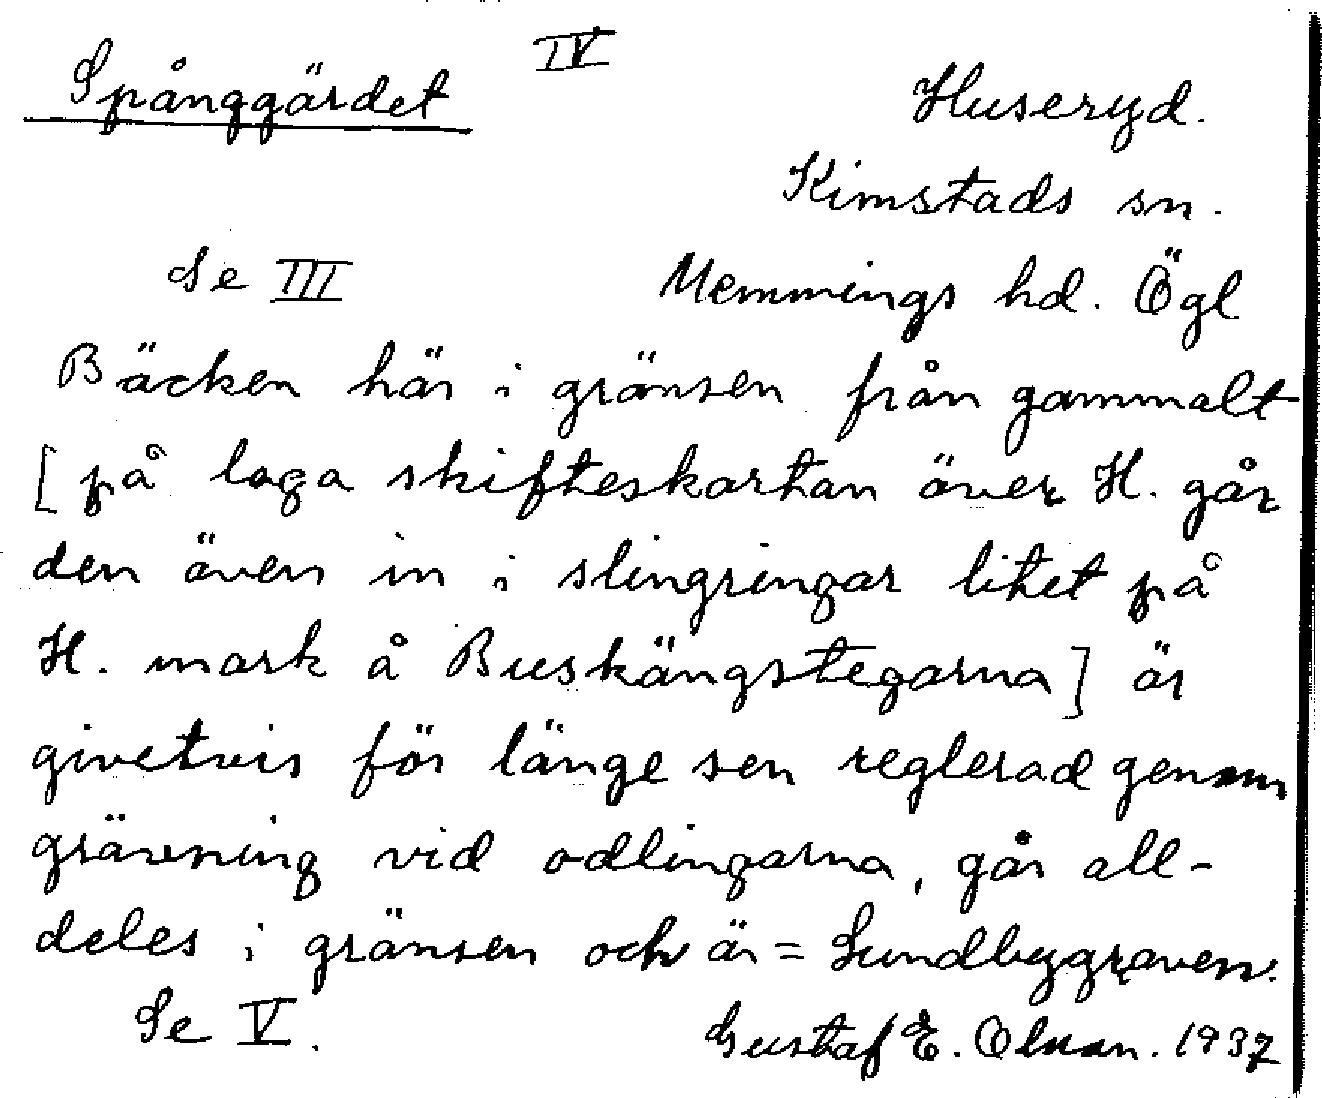 IV
Spånggärdet
Huseryd.
Kimstads sn.
Se III
Memmings hd. Ögl
Bäcken här i gränsen från gammalt
[på laga skifteskartan över H. går
den även in i slingringar litet på
H. mark å Buskängstegarna] är
givetvis för länge sen reglerad genom
grävning vid odlingarna, går all-
deles i gränsen och är = Sundbygraven.
Se V.
Gustaf E. Olsson. 1937